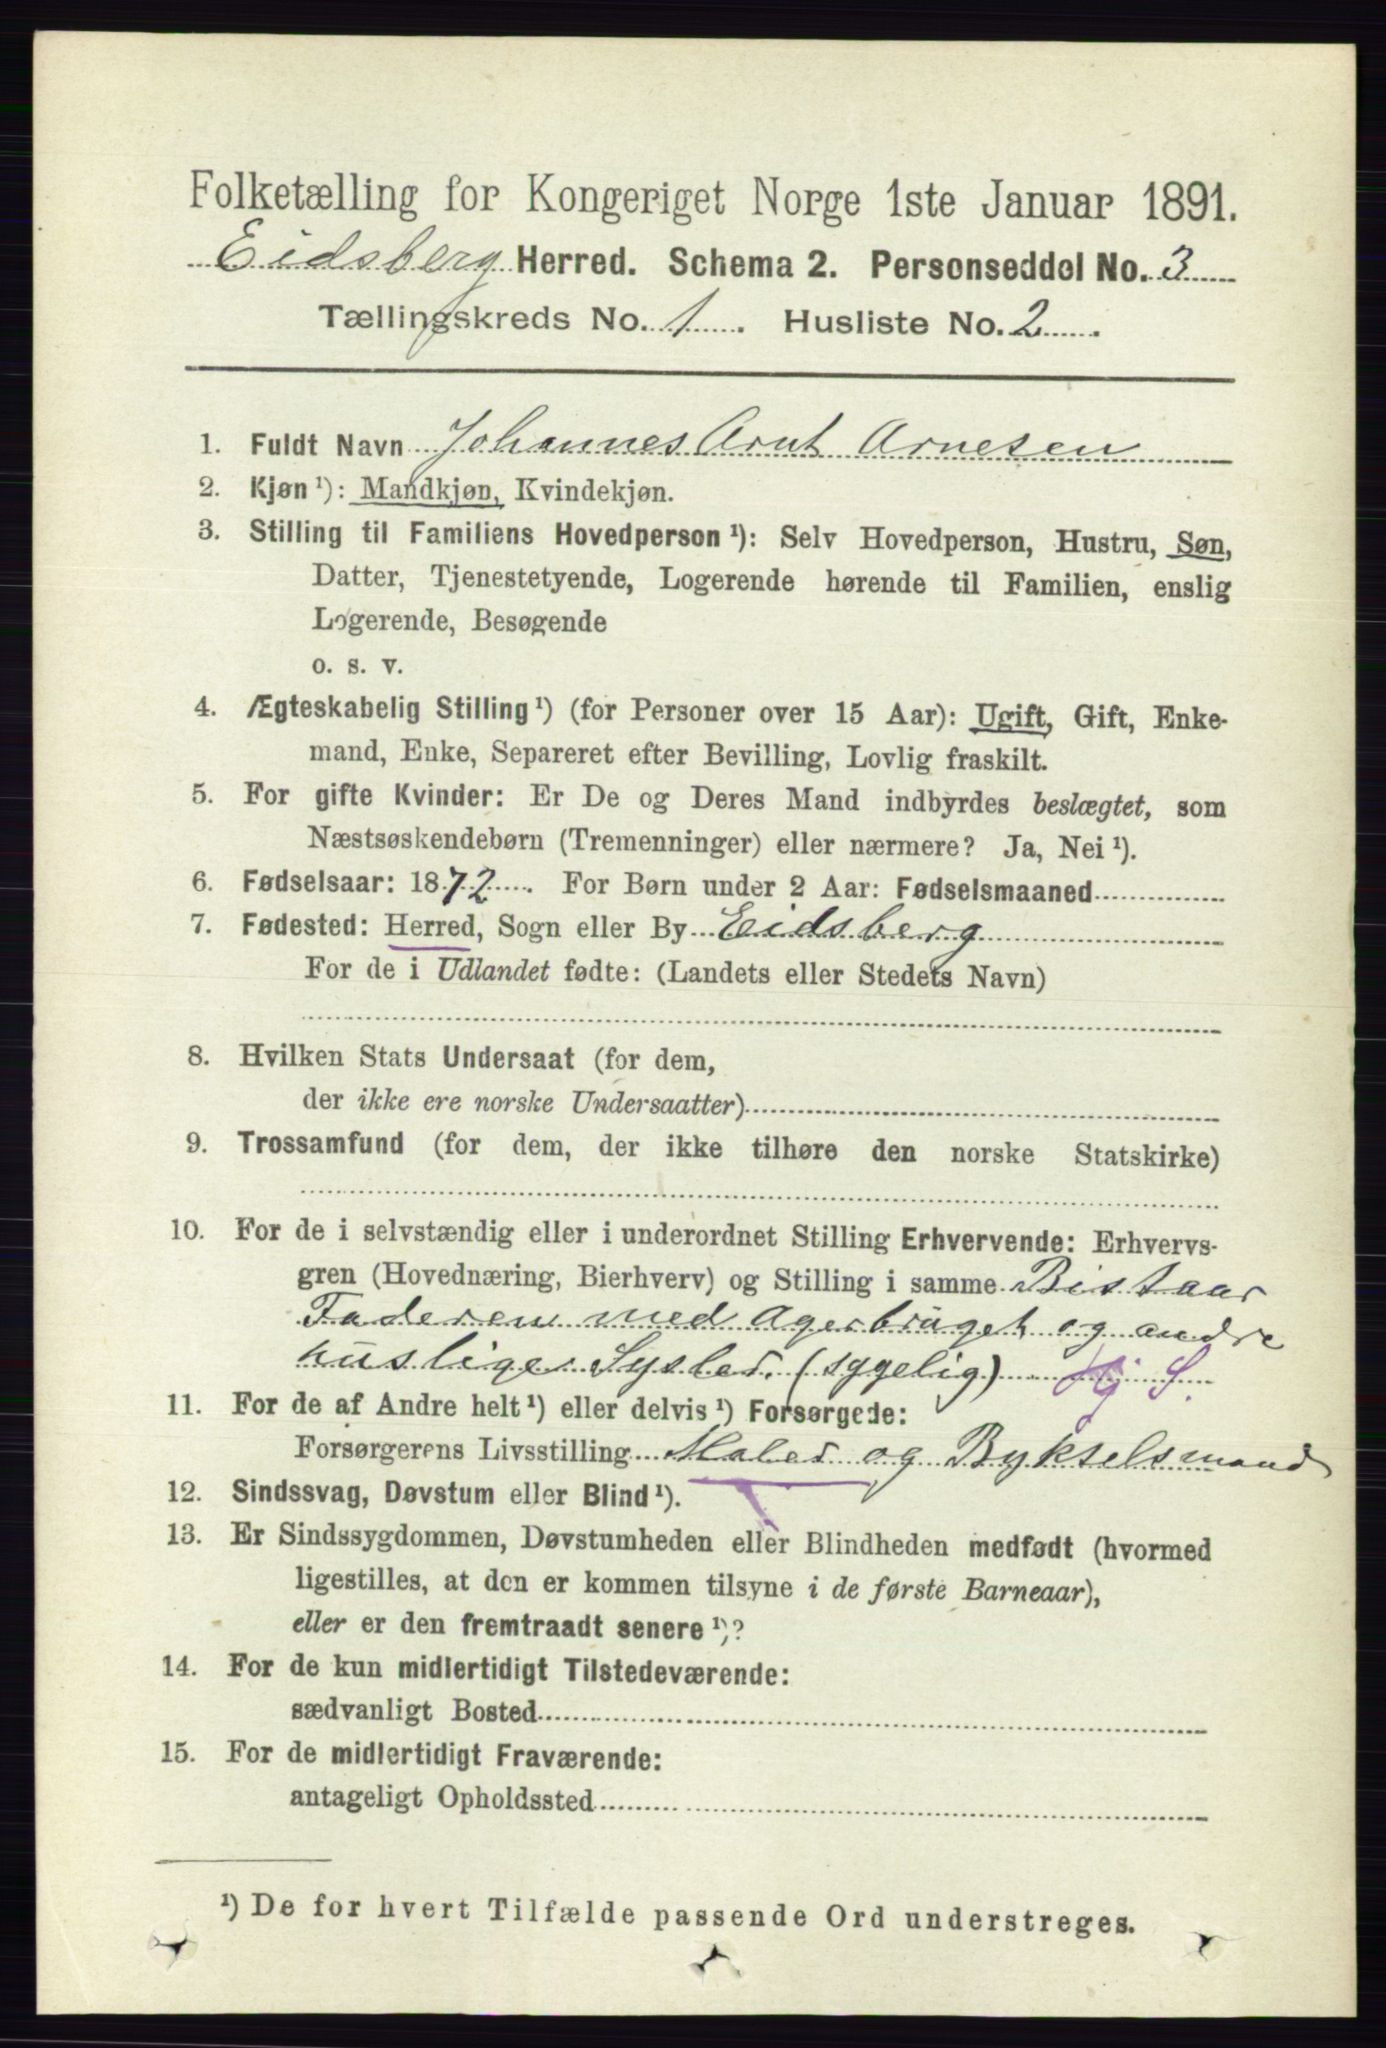 Folketælling for Kongeriget Norge 1ste Januar 1891.
Eidsberg Herred. Schema 2. Personseddel No. 3
Tællingskreds No. 1. Husliste No. 2.
1. Fuldt Navn Johannes Arnt Arnesen
2. Kjøn ¹): Mandkjøn, Kvindekjøn.
3. Stilling til Familiens Hovedperson ¹): Selv Hovedperson, Hustru, Søn,
Datter, Tjenestetyende, Logerende hørende til Familien, enslig
Logerende, Besøgende
o. s. v.
4. Ægteskabelig Stilling ¹) (for Personer over 15 Aar): Ugift, Gift, Enke-
mand, Enke, Separeret efter Bevilling, Lovlig fraskilt.
5. For gifte Kvinder: Er De og Deres Mand indbyrdes beslægtet, som
Næstsøskendebørn (Tremenninger) eller nærmere? Ja, Nei ¹).
6. Fødselsaar: 1872. For Børn under 2 Aar: Fødselsmaaned
7. Fødested: Herred, Sogn eller By Eidsberg
For de i Udlandet fødte: (Landets eller Stedets Navn)
8. Hvilken Stats Undersaat (for dem,
der ikke ere norske Undersaatter)
9. Trossamfund (for dem, der ikke tilhøre den norske Statskirke)
10. For de i selvstændig eller i underordnet Stilling Erhvervende: Erhvervs-
gren (Hovednæring, Bierhverv) og Stilling i samme Bistaar
Faderen med Agerbruget og andre
huslige Sysler. (sygelig) Hj S.
11. For de af Andre helt ¹) eller delvis ¹) Forsørgede:
Forsørgerens Livsstilling Maler og Bykselsmand
12. Sindssvag, Døvstum eller Blind ¹).
13. Er Sindssygdommen, Døvstumheden eller Blindheden medfødt (hvormed
ligestilles, at den er kommen tilsyne i de første Barneaar),
eller er den fremtraadt senere ¹)?
14. For de kun midlertidigt Tilstedeværende:
sædvanligt Bosted
15. For de midlertidigt Fraværende:
antageligt Opholdssted
¹) De for hvert Tilfælde passende Ord understreges.